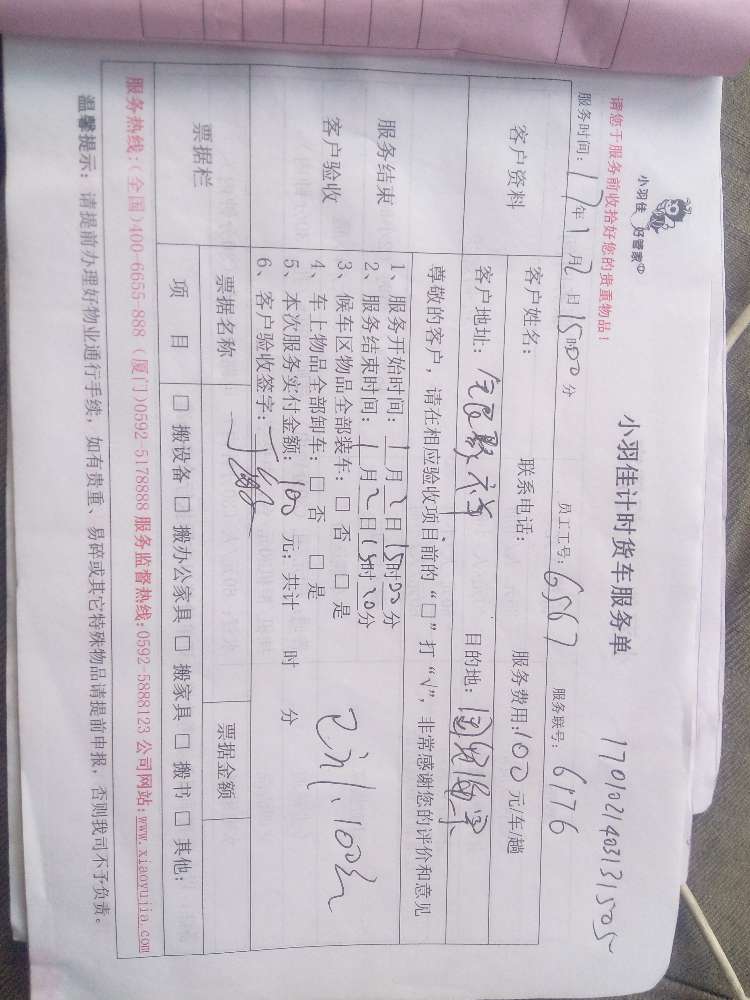 小羽佳 好管家
小羽佳计时货车服务单
1701021403131505
请您于服务前收拾好您的贵重物品！
服务时间：17年1月2日15时00分 员工工号：6567 服务联号：6176
客户资料
客户姓名： 联系电话： 服务费用：100元/车/趟
客户地址： 目的地：
尊敬的客户，请在相应验收项目前的“□”打“√”，非常感谢您的评价和意见
服务结束
客户验收
1、服务开始时间：1月2日15时00分
2、服务结束时间：1月2日15时20分
3、候车区物品全部装车：□ 否 □ 是
4、车上物品全部卸车：□ 否 □ 是
5、本次服务实付金额：100元；共计 时 分
6、客户验收签字：
票据栏
票据名称 票据金额
项 目 □ 搬设备 □ 搬办公家具 □ 搬家具 □ 搬书 □ 其他：
服务热线：(全国)400-6655-888 (厦门)0592-5178888 服务监督热线：0592-5888123 公司网站：www.xiaoyujia.com
温馨提示：请提前办理好物业通行手续，如有贵重、易碎或其它特殊物品请提前申报，否则我司不予负责。